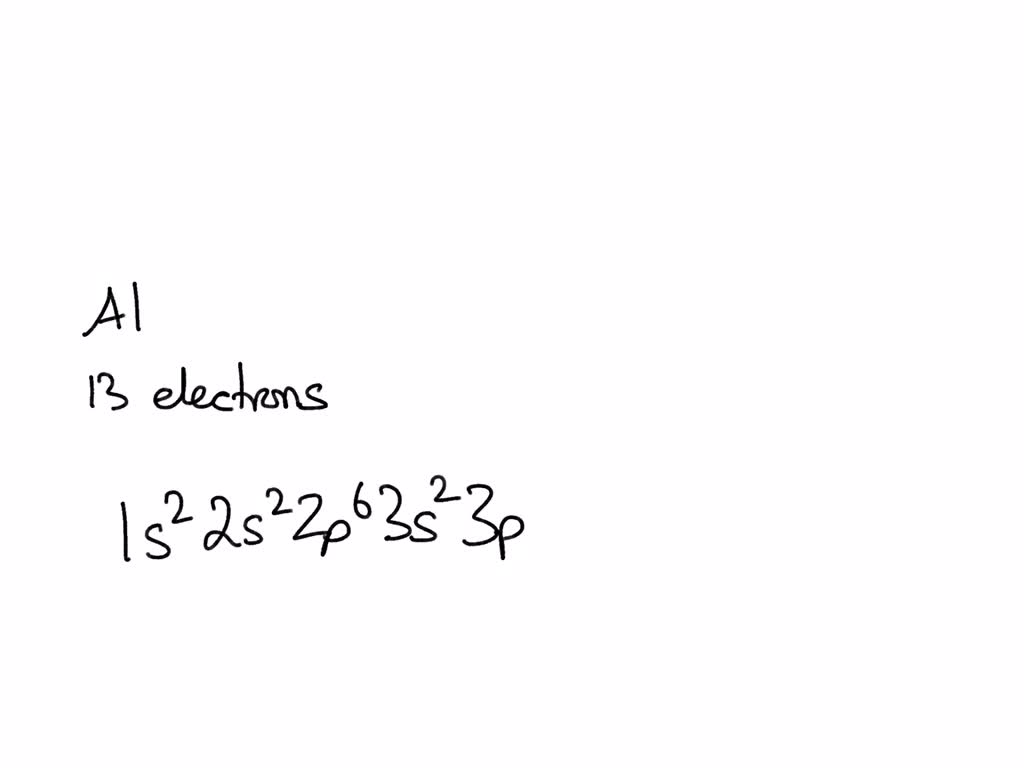 Al
13 electrons
1s²2s²2p⁶3s²3p